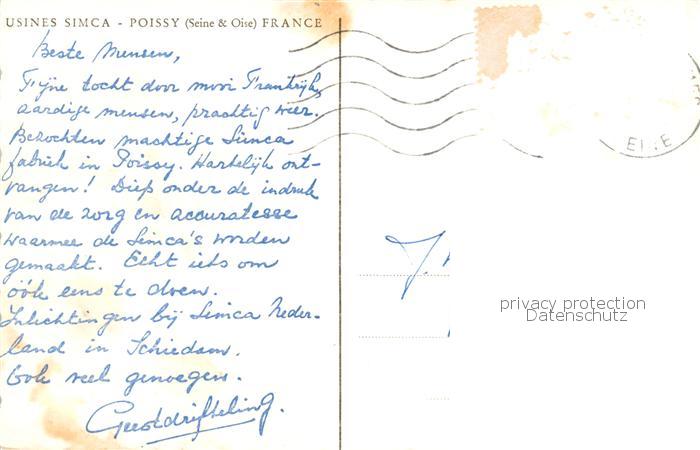 USINES SIMCA - POISSY (Seine & Oise) FRANCE
Beste Mensen,
Fijne tocht door mooi Frankrijk,
aardige mensen, prachtig weer.
Bezochten machtige Simca
fabriek in Poissy. Hartelijk ont-
vangen! Diep onder de indruk
van de zorg en accuratesse
waarmee de Simca's worden
gemaakt. Echt iets om
óók eens te doen.
Inlichtingen bij Simca Neder-
land in Schiedam.
Ook veel genoegen.
J.
privacy protection
Datenschutz